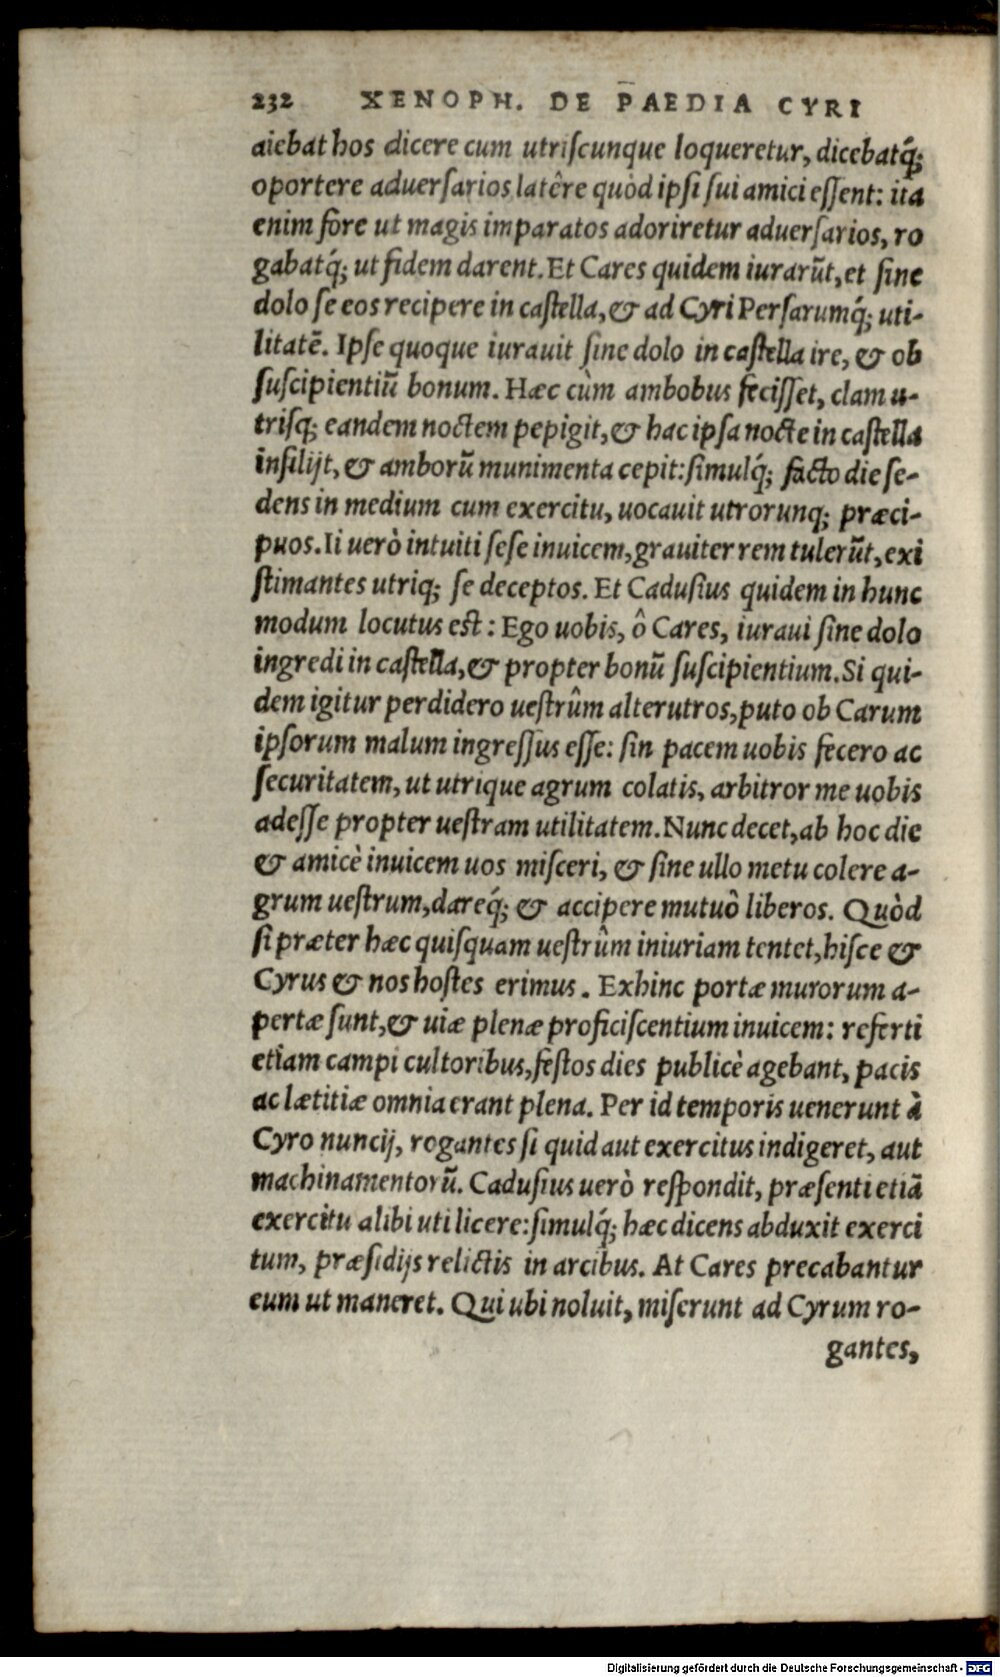 232 XENOPH. DE PAEDIA CYRI
aiebat hos dicere cum utriſcunque loqueretur, dicebatq́;
oportere aduerſarios latêre quòd ipſi ſui amici eſſent: ita
enim fore ut magis imparatos adoriretur aduerſarios, ro
gabatq́; ut fidem darent. Et Cares quidem iurarūt, et ſine
dolo ſe eos recipere in caſtella, & ad Cyri Perſarumq́; uti-
litatē. Ipſe quoque iurauit ſine dolo in caſtella ire, & ob
ſuſcipientiū bonum. Hæc cùm ambobus feciſſet, clam u-
triſq; eandem noctem pepigit, & hac ipſa nocte in caſtella
inſilijt, & amborū munimenta cepit: ſimulq́; facto die ſe-
dens in medium cum exercitu, uocauit utrorunq; præci-
puos. Ii uerò intuiti ſeſe inuicem, grauiter rem tulerūt, exi
ſtimantes utriq; ſe deceptos. Et Caduſius quidem in hunc
modum locutus est: Ego uobis, ô Cares, iuraui ſine dolo
ingredi in caſtella, & propter bonū ſuſcipientium. Si qui-
dem igitur perdidero ueſtrûm alterutros, puto ob Carum
ipſorum malum ingreſſus eſſe: ſin pacem uobis fecero ac
ſecuritatem, ut utrique agrum colatis, arbitror me uobis
adeſſe propter ueſtram utilitatem. Nunc decet, ab hoc die
& amicè inuicem uos miſceri, & ſine ullo metu colere a-
grum ueſtrum, dareq́; & accipere mutuò liberos. Quòd
ſi præter hæc quiſquam ueſtrûm iniuriam tentet, hiſce &
Cyrus & nos hoſtes erimus. Exhinc portæ murorum a-
pertæ ſunt, & uiæ plenæ proficiſcentium inuicem: referti
etiam campi cultoribus, feſtos dies publicè agebant, pacis
ac lætitiæ omnia erant plena. Per id temporis uenerunt à
Cyro nuncij, rogantes ſi quid aut exercitus indigeret, aut
machinamentorū. Caduſius uerò reſpondit, præſenti etiā
exercitu alibi uti licere: ſimulq́; hæc dicens abduxit exerci
tum, præſidijs relictis in arcibus. At Cares precabantur
eum ut maneret. Qui ubi noluit, miſerunt ad Cyrum ro-
gantes,
Digitalisierung gefördert durch die Deutsche Forschungsgemeinschaft - DFG